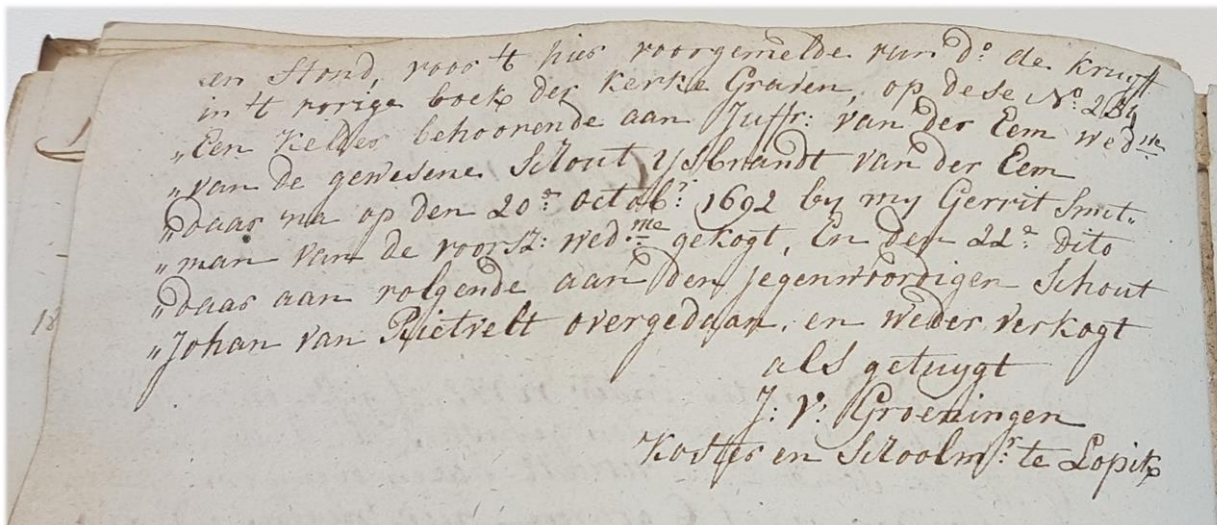 en Stond, voor 't hier voorgemelde van d.o de Kruyff
in 't vorige boek der Kerke Graven, op dese N.o 234
„Een Kelder behoorende aan Juffr: van der Eem wed.we
„van de gewesene Schout ysbrandt van der Eem
„daar na op den 20.e octob.r 1692 by my Gerrit Smet„
„man van de voorsz: wed.we gekogt, En den 22.e dito
„daar aan volgende aan den jegenwoordigen Schout
„Johan van Rietvelt overgedaan, en weder verkogt
als getuygt
J: V: Groeningen
Koster en Schoolm.r te Lopik